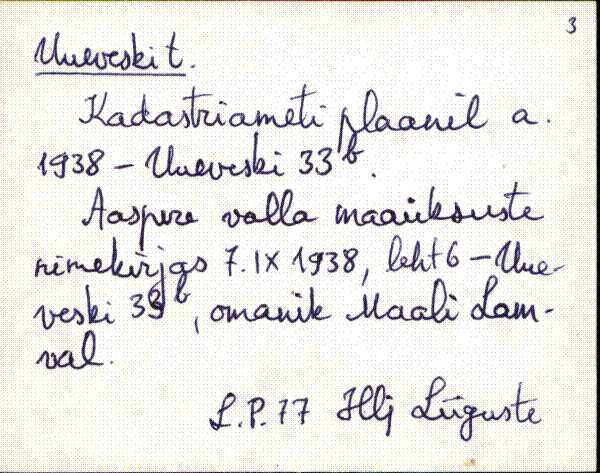 3
Uueveski t.
Kadastriameti plaanil a.
1938 – Uueveski 33b.
Aaspere valla maaüksuste
nimekirjas 7.IX 1938, leht 6 – Uue-
veski 33b, omanik Maali Lam-
val.
L.P.77 Hlj Liiguste